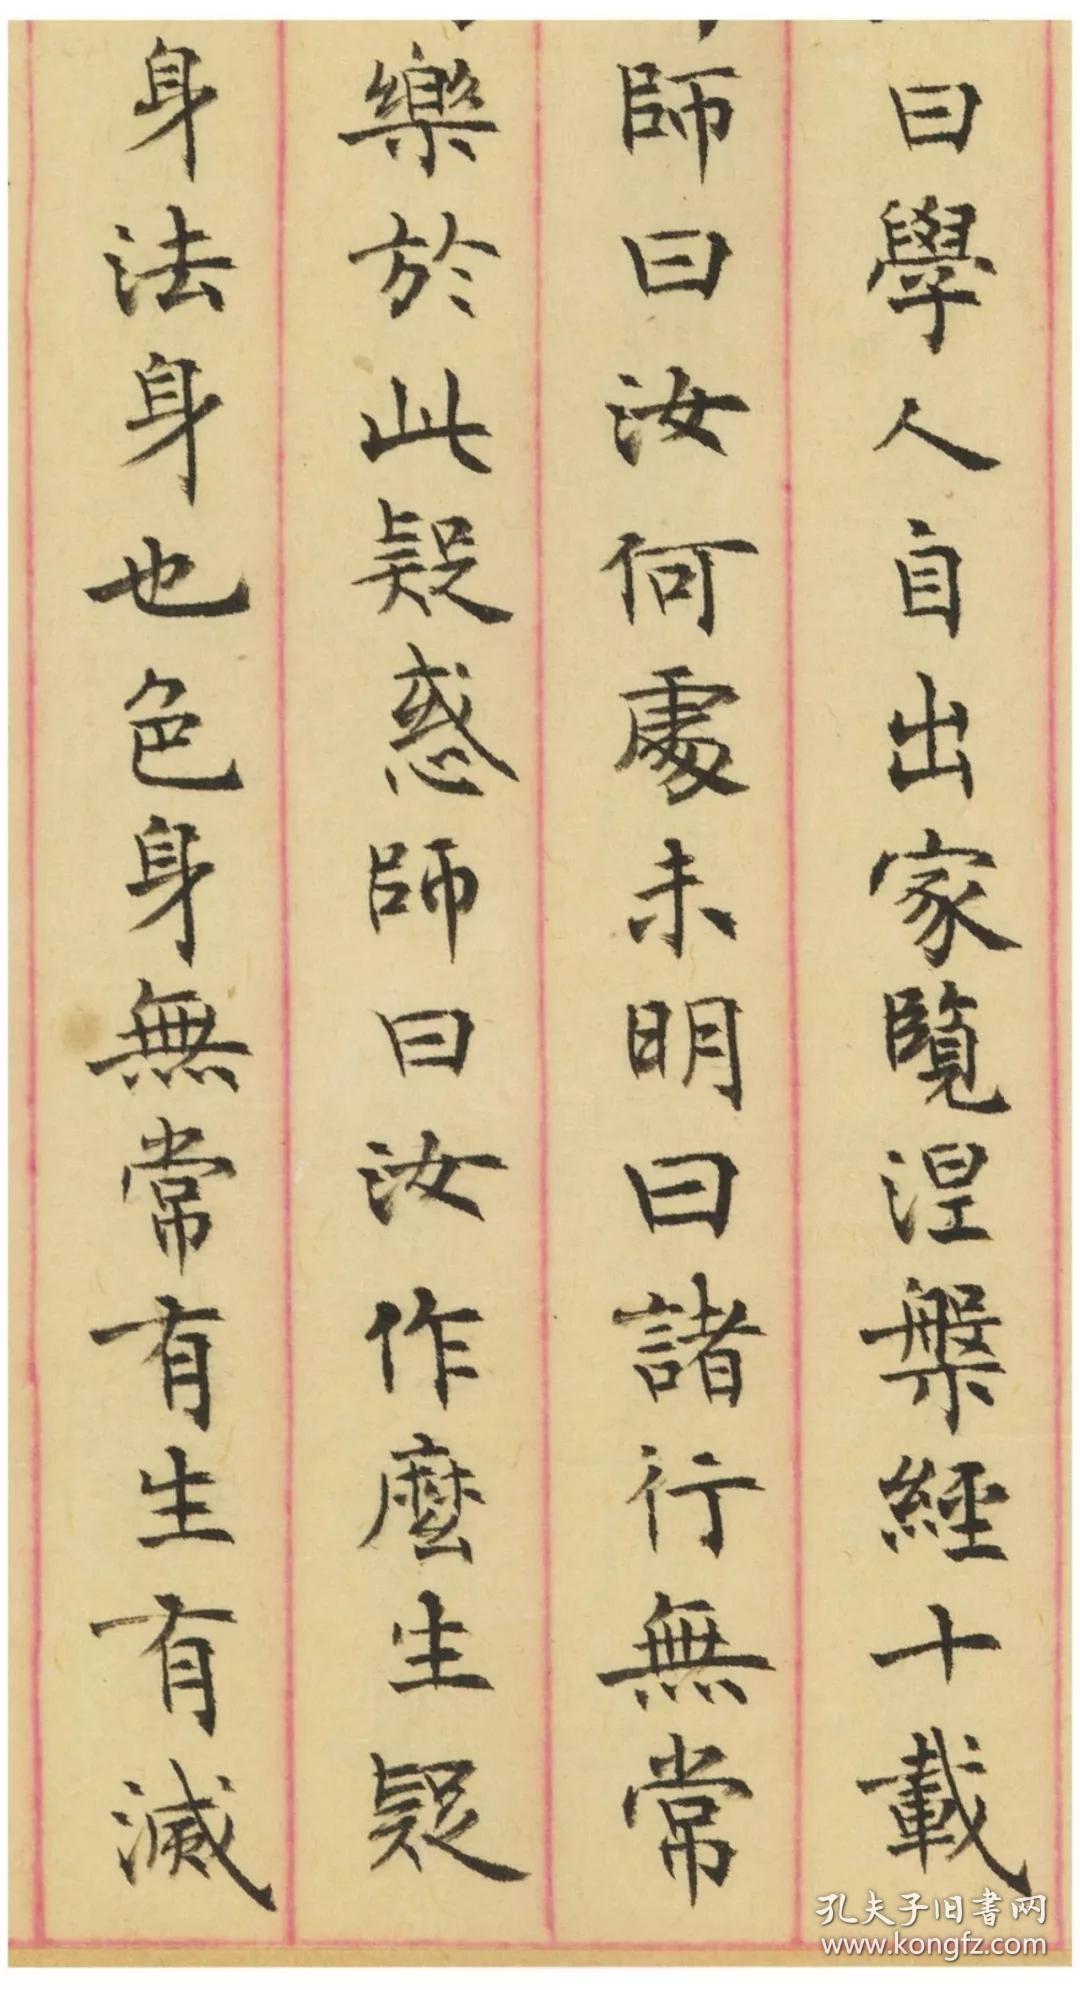 曰學人自出家覽涅槃經十載
師曰汝何處未明曰諸行無常
樂於此疑惑師曰汝作麼生疑
身法身也色身無常有生有滅
孔夫子旧书网
www.kongfz.com